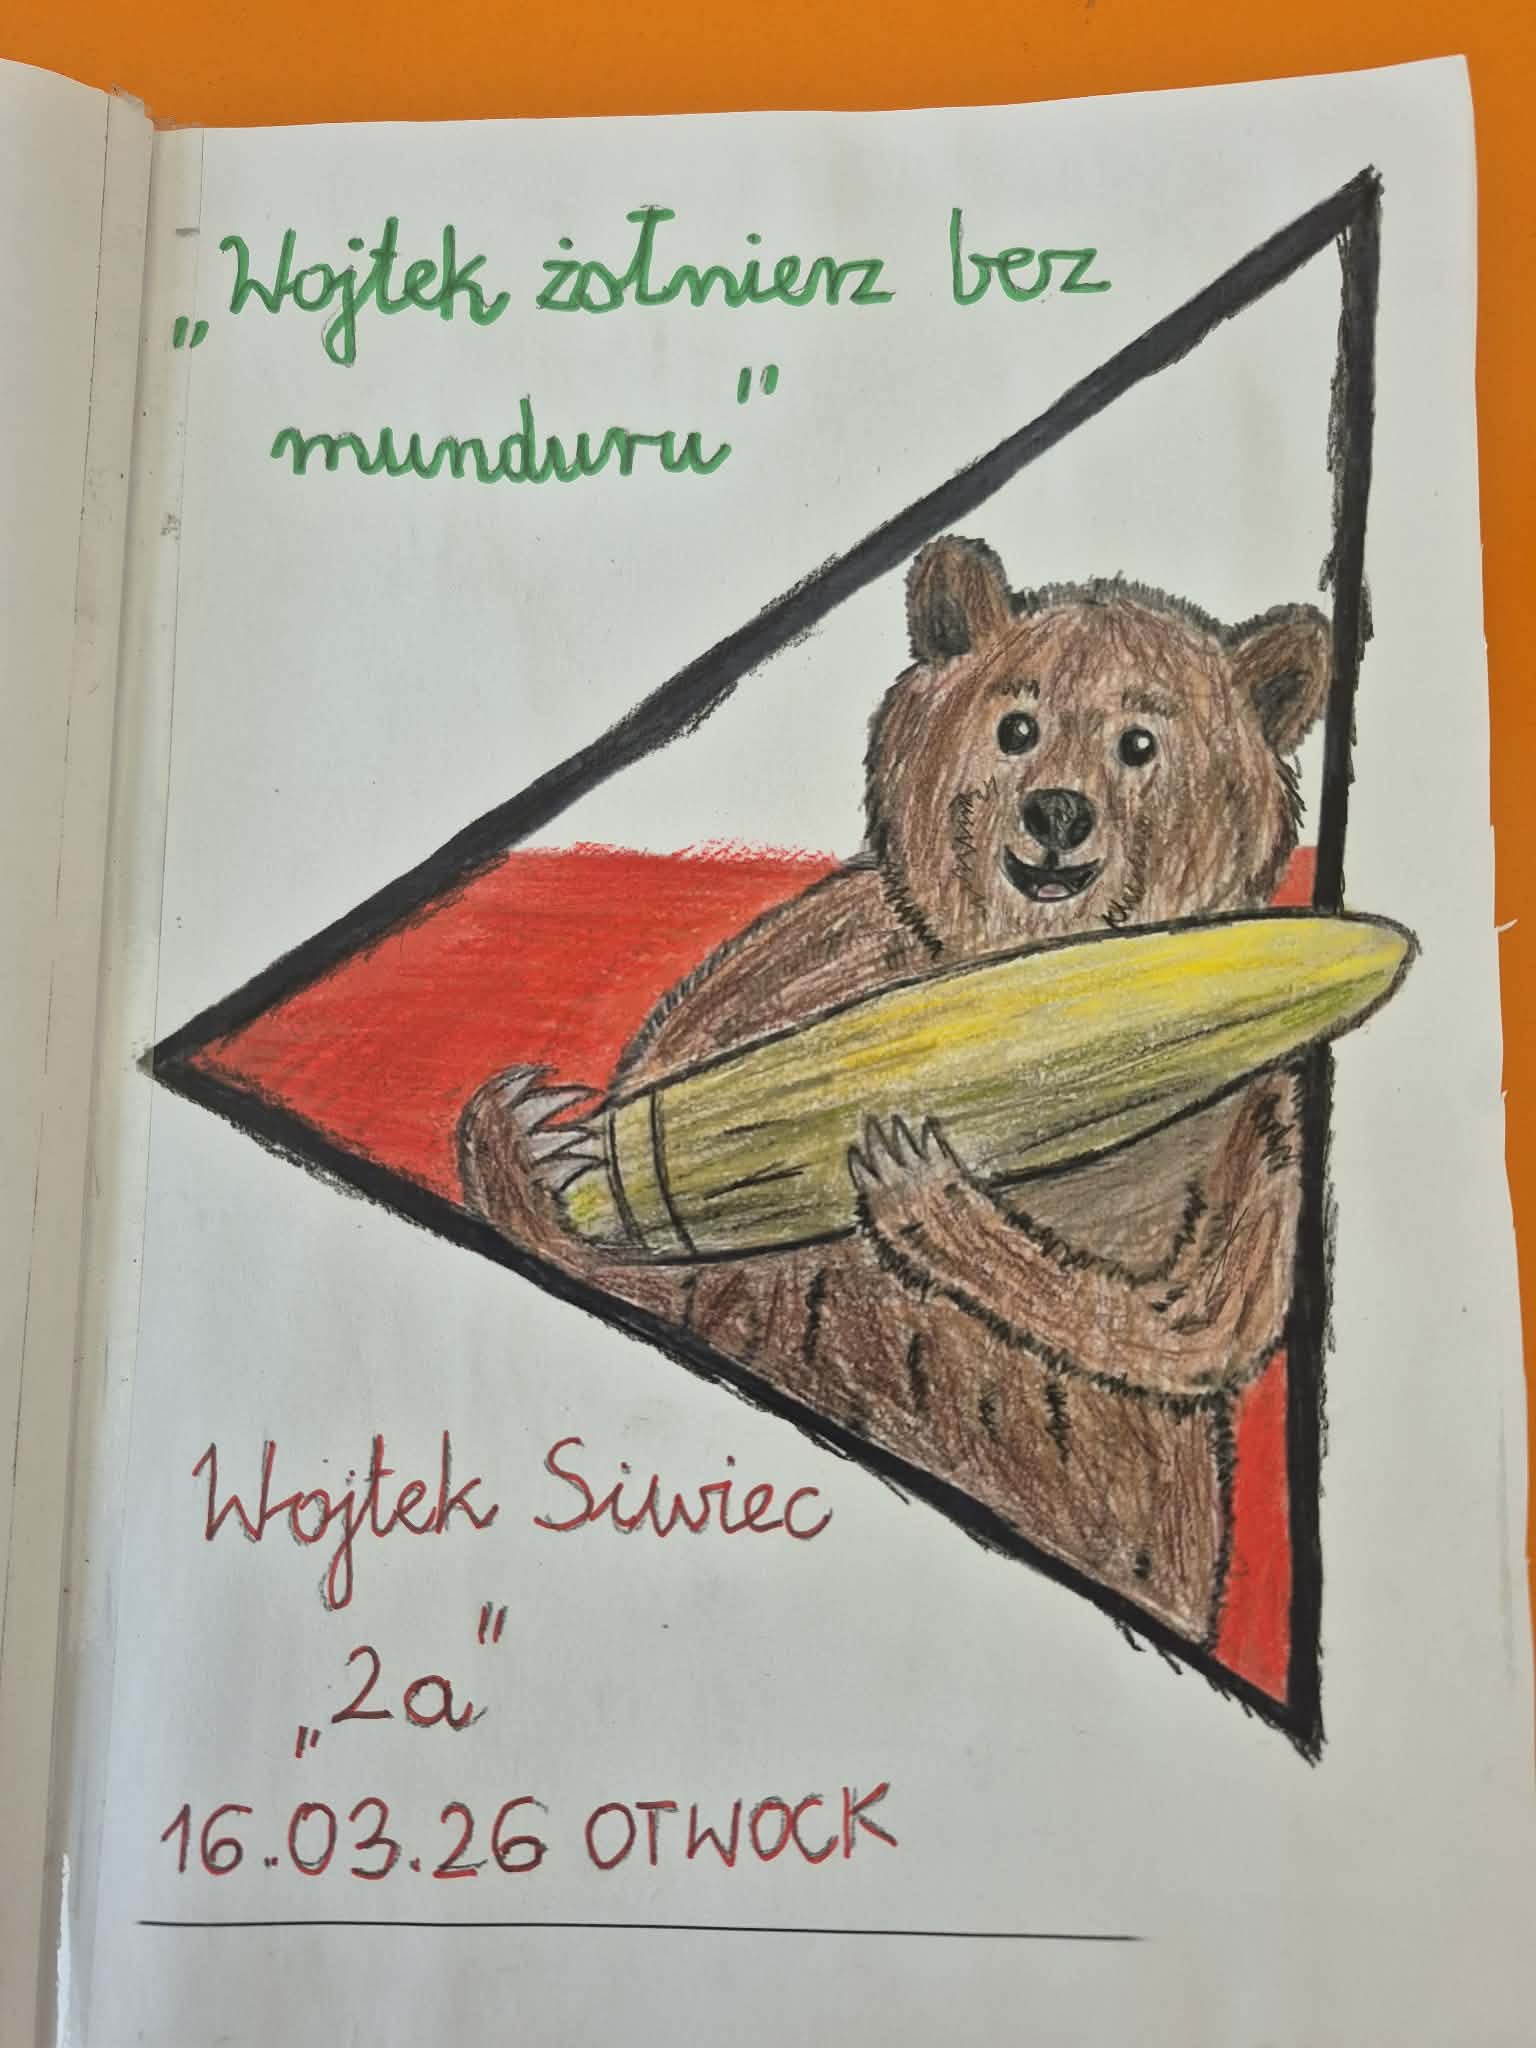 „Wojtek żołnierz bez
munduru"
Wojtek Siwiec
„2a"
16.03.26 OTWOCK